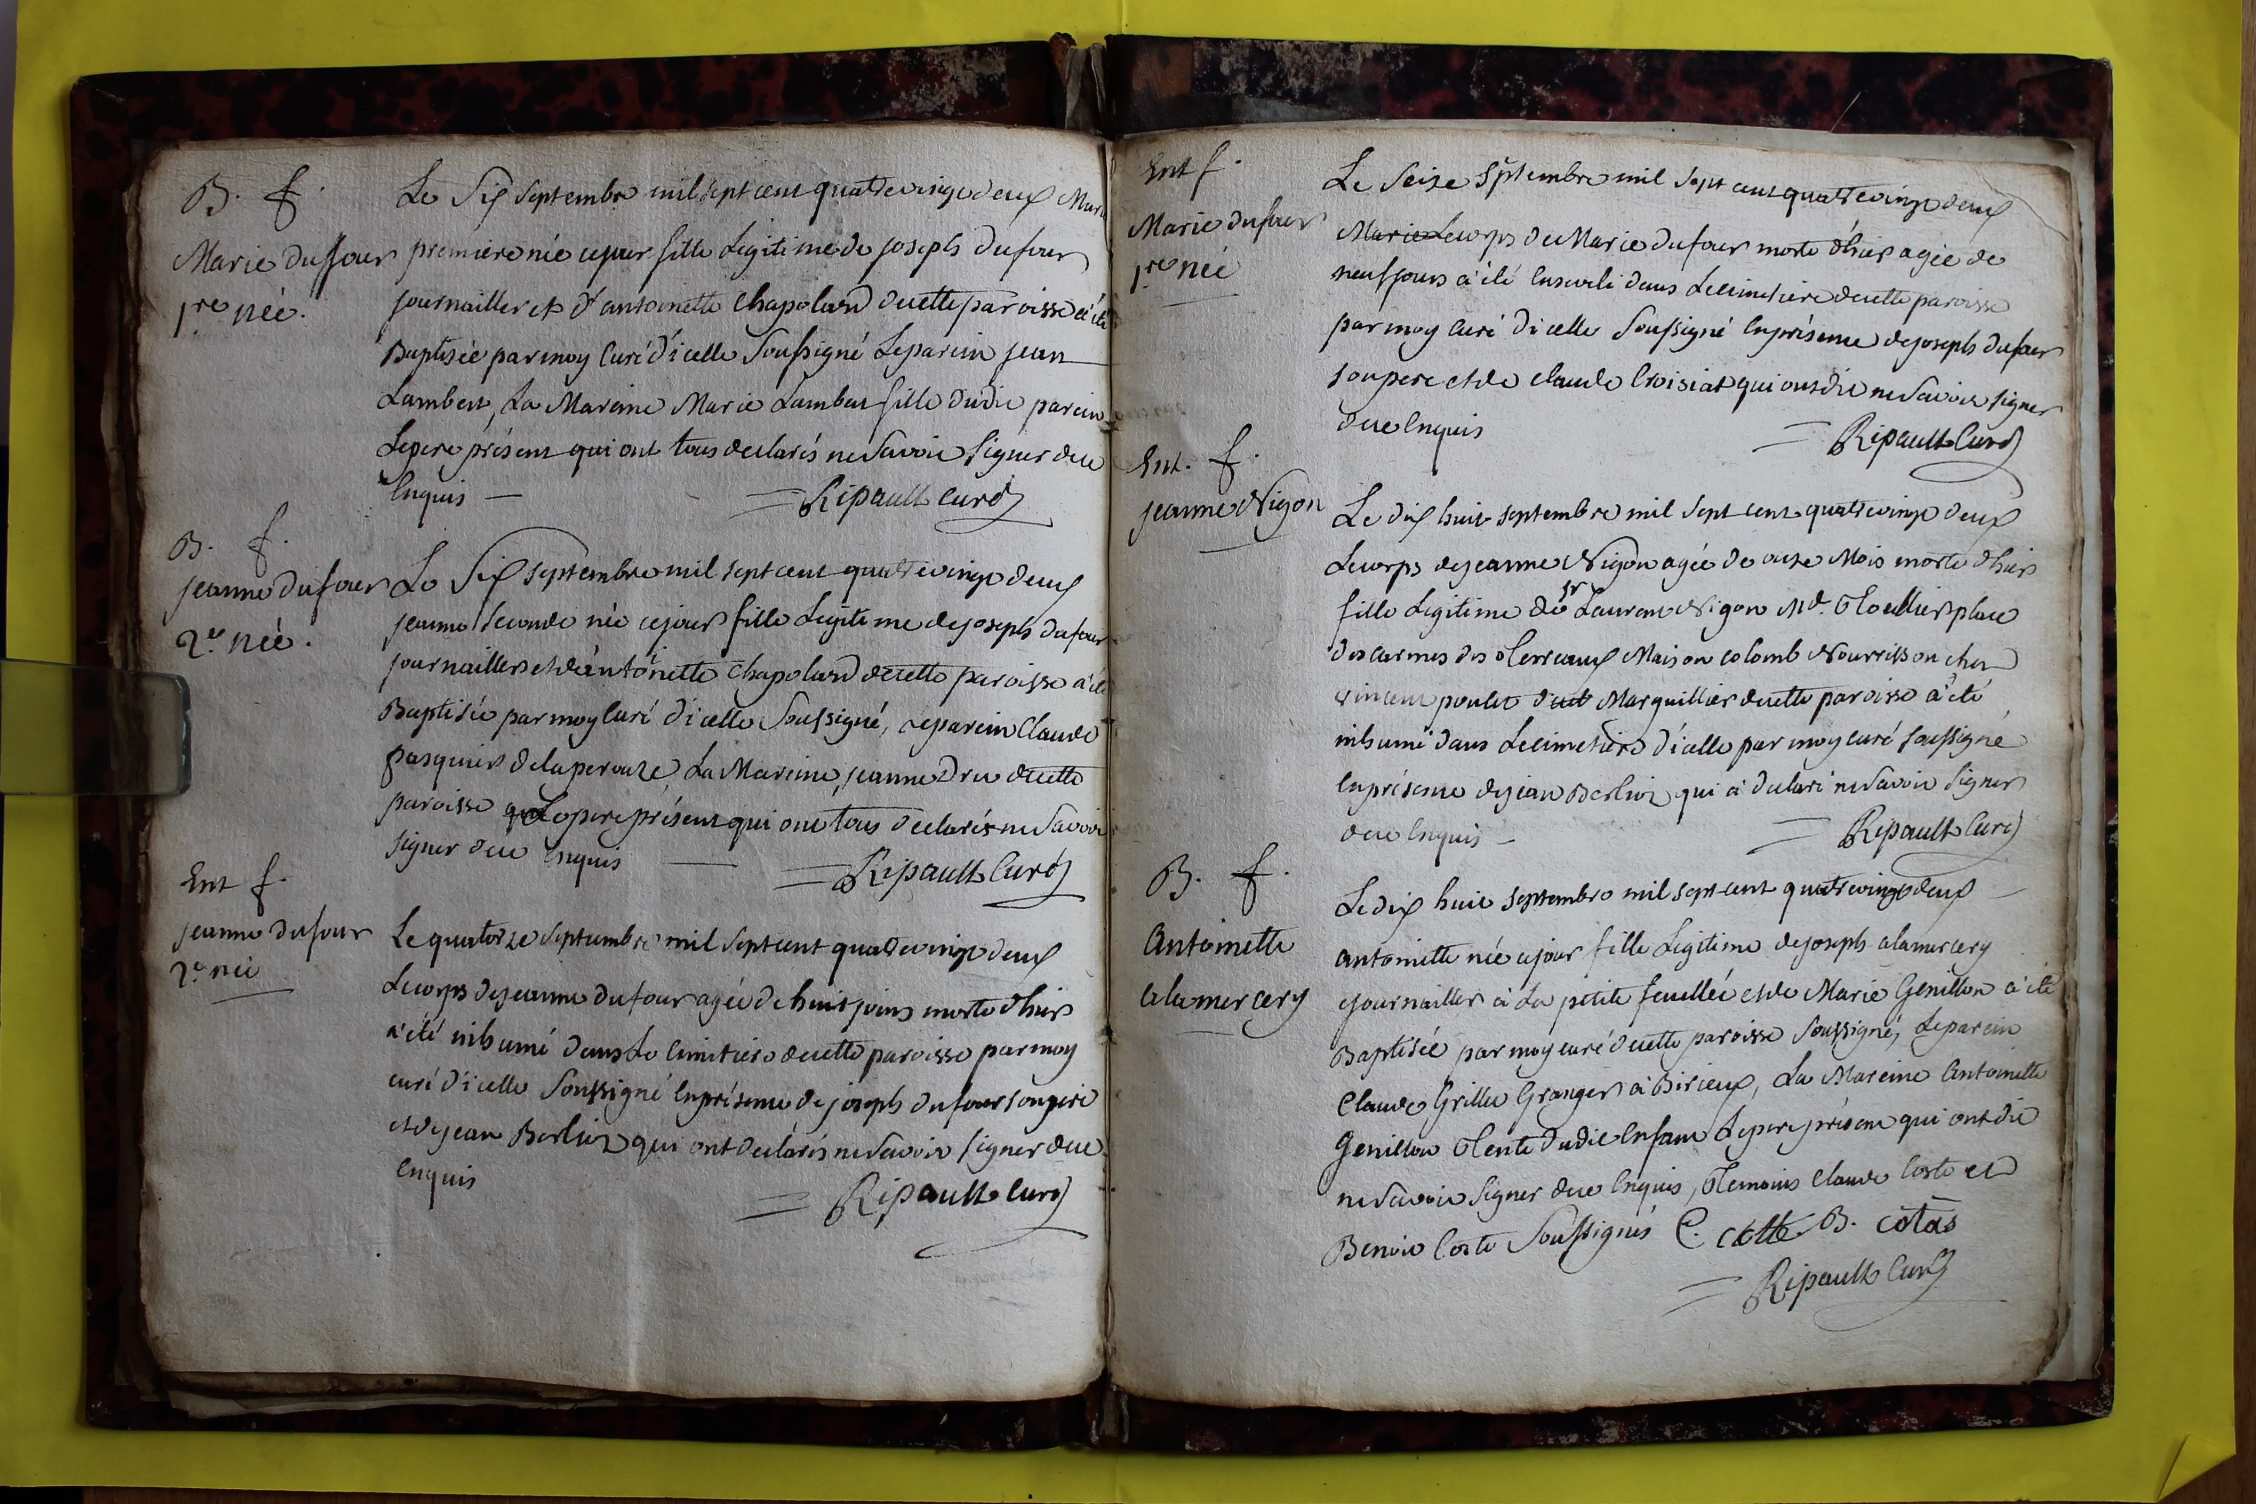 B. f.
Marie duffour
1re née.
Le Six septembre mil sept cent quatrevingt deux Marie
premiere née cejour fille Legitime de joseph dufour
journallier et d'antoinette Chapoland decette paroisse a été
Baptisée par moy Curé d'icelle Soussigné Leparein jean
Lambert, La Mareine Marie Lambert fille dudit parein
Lepere présent qui ont tous declarés ne Savoir Signer dece
Enquis — = Ripault Curé
B. f.
jeanne dufour
2e née.
Le Six septembre mil sept cent quatrevingt deux
jeanne Seconde née cejour fille Legitime dejoseph dufour
journaillier et d'antoinette Chapoland decette paroisse a été
Baptisée par moy Curé d'icelle Soussigné, Leparein Claude
pasquier delaperouze La Mareine jeanne Dru decette
paroisse Lepere présent qui ont tous declarés ne Savoir
Signer dece Enquis — = Ripault Curé
Ent f.
jeanne dufour
2e née
Le quatorze septembre mil sept cent quatrevingt deux
Lecorps dejeanne dufour agée de huit jours morte d'hier
a été inhumé dans Le Cimetiere decette paroisse par moy
curé d'icelle Soussigné En présence de joseph dufour son pere
et de jean Berlioz qui ont declarés ne Savoir Signer dece
Enquis = Ripault Curé
Ent f.
Marie dufour
1re née
Le Seize Septembre mil Sept cent quatrevingt deux
Marie Lecorps de Marie dufour morte d'hier agée de
neuf jours a été Enseveli dans Lecimetiere decette paroisse
par moy Curé d'icelle Soussigné En présence de joseph dufour
son pere et de Claude Croisiat qui ont dit ne Savoir Signer
dece Enquis = Ripault Curé
Ent. f.
jeanne Nigon
Le dix huit septembre mil Sept cent quatrevingt deux
Lecorps dejeanne Nigon agée de onze Mois morte d'hier
fille Legitime de Sr Laurent Nigon Md. place
des Carmes des terreaux Maison Colomb Nourrisson chez
vincent poulet Marguillier decette paroisse a été
inhumé dans Lecimetiere d'icelle par moy curé Soussigné
En présence dejean Berlioz qui a declaré ne Savoir Signer
dece Enquis — = Ripault Curé
B. f.
Antoinette
alamercery
Le dix huit septembre mil sept cent quatrevingt deux
antoinette née cejour fille Legitime dejoseph alamercery
journaillier à La petite feuillée et de Marie Genillon a été
Baptisée par moy curé decette paroisse Soussigné, Leparein
Claude Grillet Granger à Birieux, La Mareine Antoinette
Genillon Tente dudit Enfant Lepere présent qui ont dit
ne Savoir Signer dece Enquis, Temoins Claude Coste et
Benoit Coste Soussignés C. cotte B. cotas
= Ripault Curé